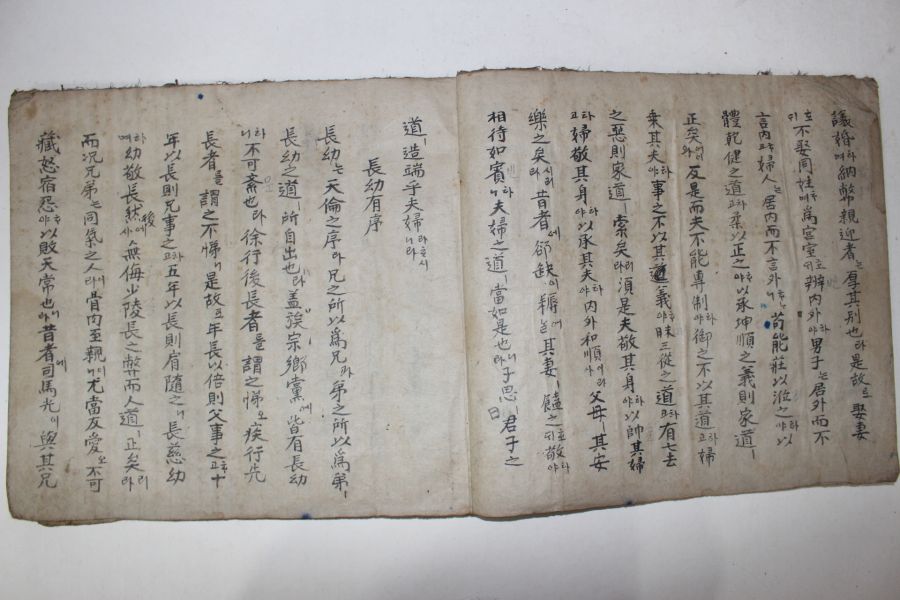 議婚하여納幣親迎者는厚其別也라是故로娶妻
호되不娶同姓하며爲宮室호되辨內外하야男子는居外而不
言內하고婦人는居內而不言外하나니苟能莊以涖之하야以
體乾健之道하고柔以正之하야以承坤順之義則家道ㅣ
正矣어니와反是而夫不能專制하야御之不以其道하고婦
乘其夫하야事之不以其義하야昧三從之道하고有七去
之惡則家道ㅣ索矣리라須是夫敬其身하야以帥其婦
하고婦敬其身하야以承其夫하야內外和順이라야父母ㅣ其安
樂之矣시리라昔者에郤缺이耨에其妻ㅣ饁之호되敬하야
相待如賓하니夫婦之道ㅣ當如是也니라子思ㅣ曰君子之
道ㅣ造端乎夫婦라하시니라
長幼有序
長幼는天倫之序라兄之所以爲兄과弟之所以爲弟ㅣ
長幼之道ㅣ所自出也라盖族宗鄕黨에皆有長幼
하니不可紊也라徐行後長者를謂之悌오疾行先
長者를謂之不悌니是故로年長以倍則父事之하고十
年以長則兄事之하고五年以長則肩隨之니長慈幼
하며幼敬長然後에사無侮少陵長之弊而人道ㅣ正矣리라
而況兄弟는同氣之人이라骨肉至親이니尤當友愛오不可
藏怒宿怨하야以敗天常也니라昔者에司馬光이與其兄